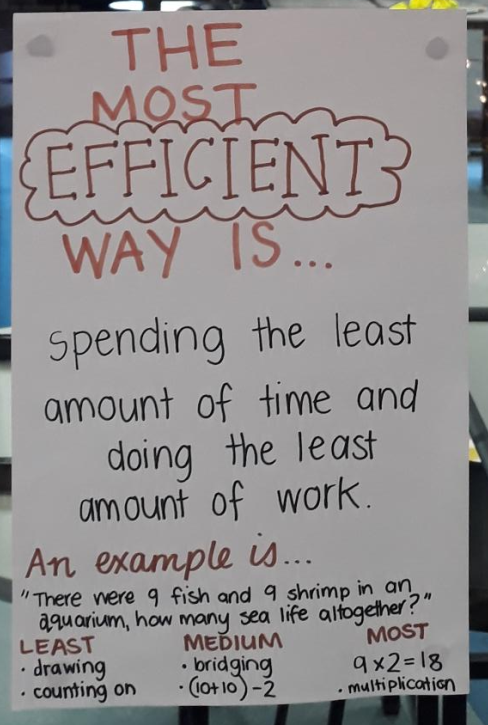 THE
MOST
EFFICIENT
WAY IS...
spending the least
amount of time and
doing the least
amount of work.
An example is...
"There were 9 fish and 9 shrimp in an
aquarium, how many sea life altogether?"
LEAST
· drawing
· counting on
MEDIUM
· bridging
· (10+10)-2
MOST
9x2=18
· multiplication